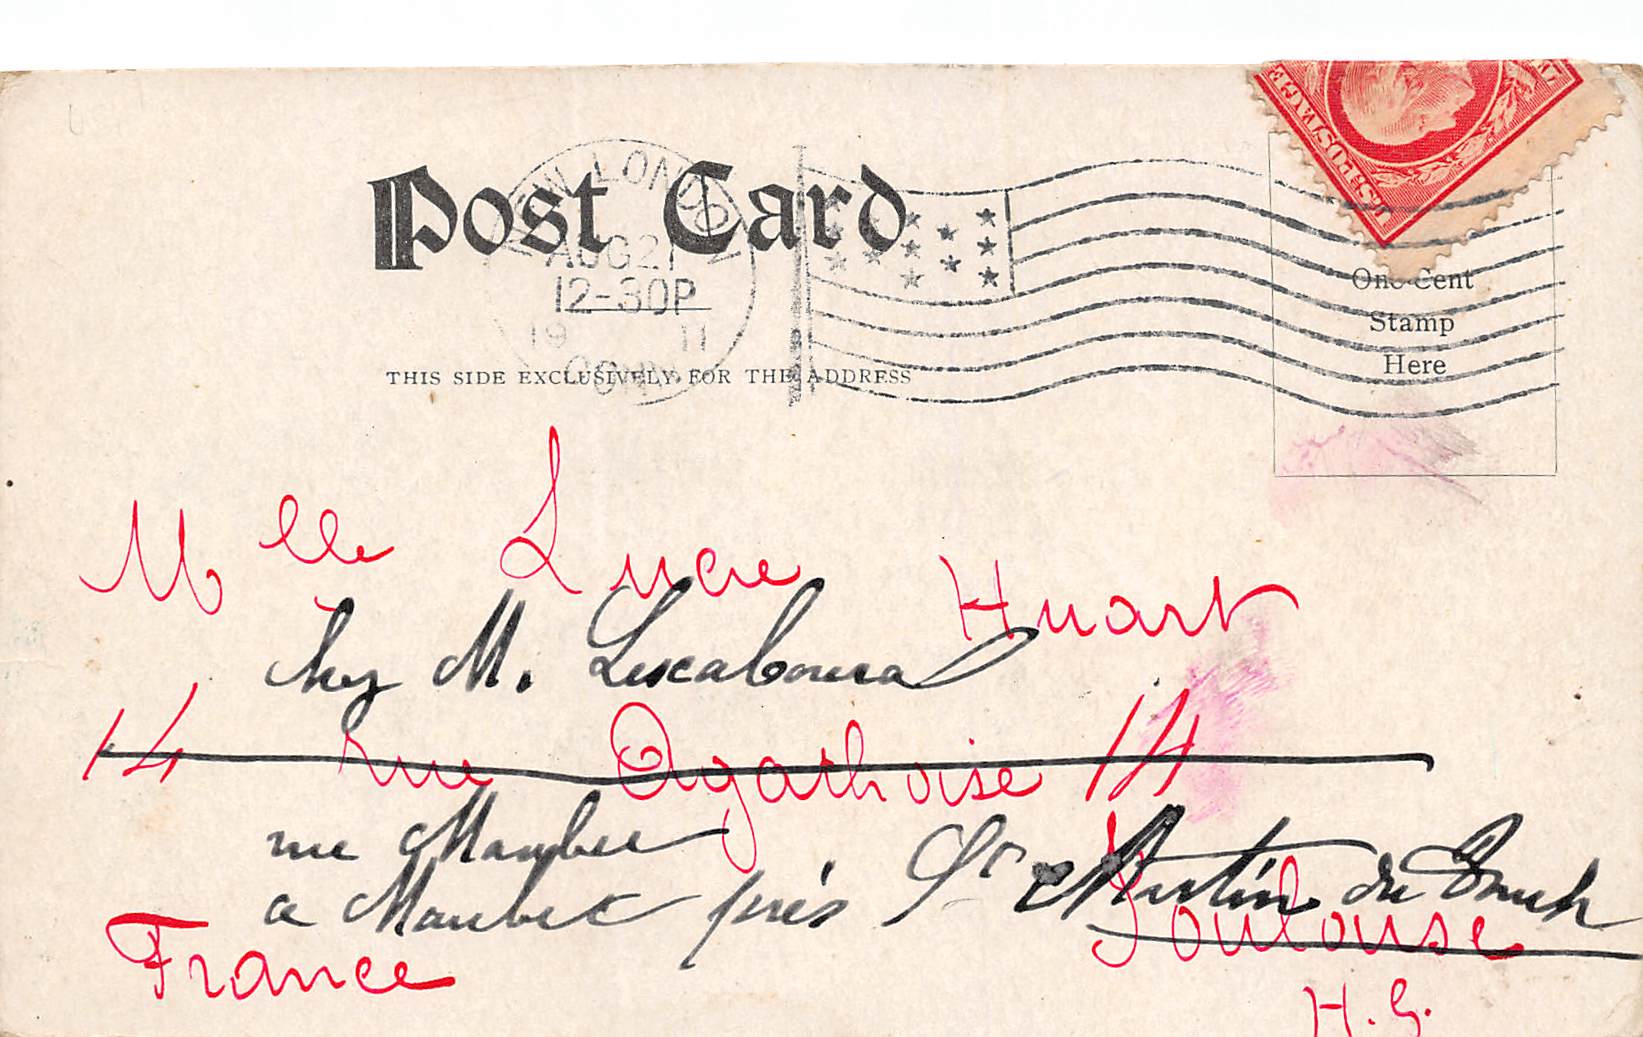 U.S. POSTAGE
NEW LONDON
AUG 21
12-30P
19 11
CONN.
Post Card
THIS SIDE EXCLUSIVELY FOR THE ADDRESS
One Cent
Stamp
Here
Mlle Lucie Huart
chez M. 
14 rue Agathoise 14
rue Maubec
a Maubec près St Martin du Touch
Toulouse
France
H. G.